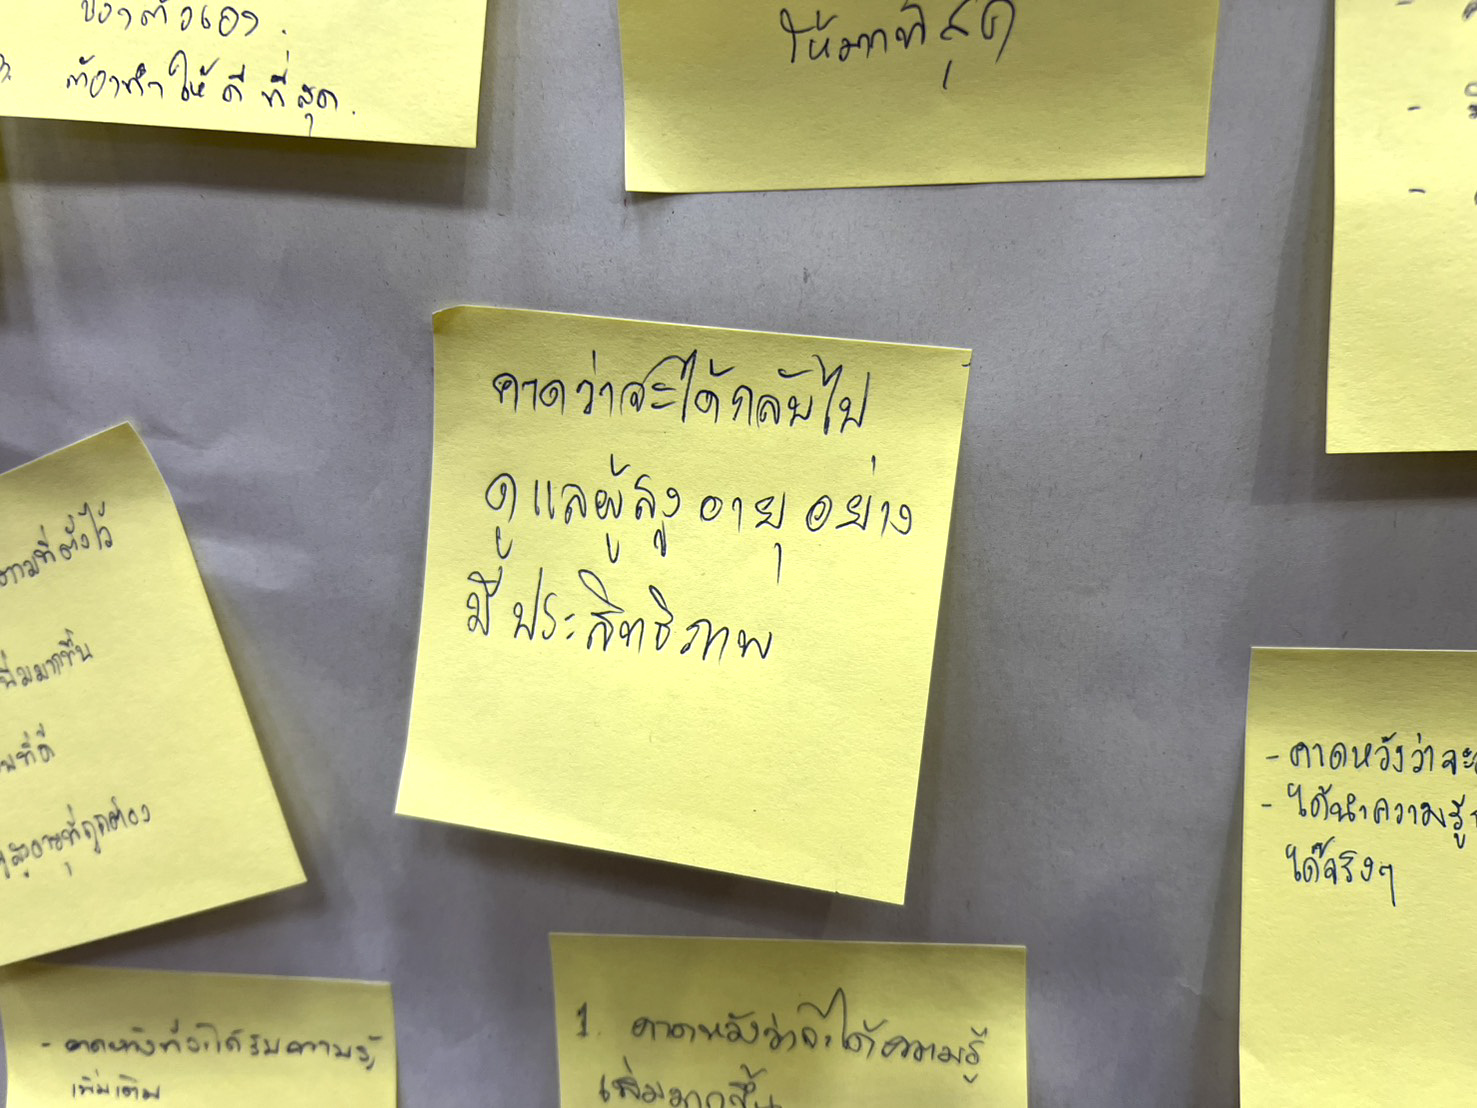 ของตัวเอง.
ต้องทำให้ดีที่สุด.
ให้มากที่สุด
คาดว่าจะได้กลับไป
ดูแลผู้สูงอายุอย่าง
มีประสิทธิภาพ
ตามที่ตั้งไว้
มากขึ้น
ที่ดี
สูงอายุที่ถูกต้อง
- คาดหวังว่าจะ
- ได้นำความรู้
ได้จริงๆ
- คาดหวังที่จะได้รับความรู้
เพิ่มเติม
1. คาดหวังว่าจะได้ความรู้
เพิ่มมากขึ้น